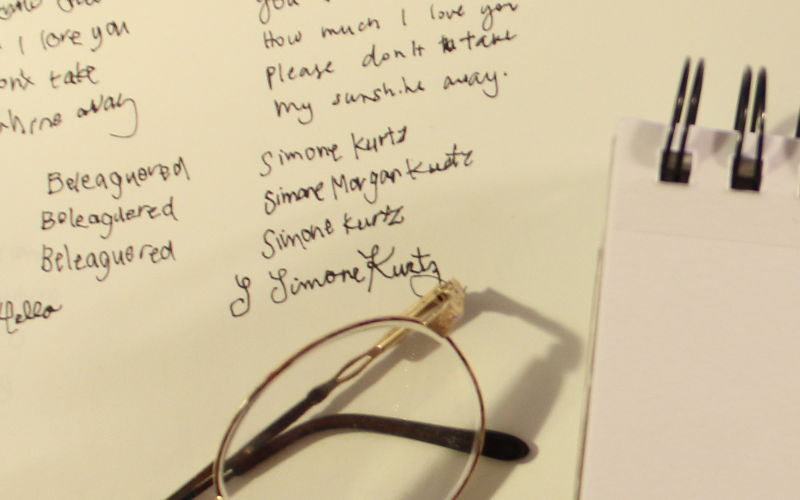 I love you
take
away
Beleaguered
Beleaguered
Beleaguered
Hello
you
How much I love you
please don't take
my sunshine away.
Simone Kurtz
Simone Morgan Kurtz
Simone Kurtz
S Simone Kurtz